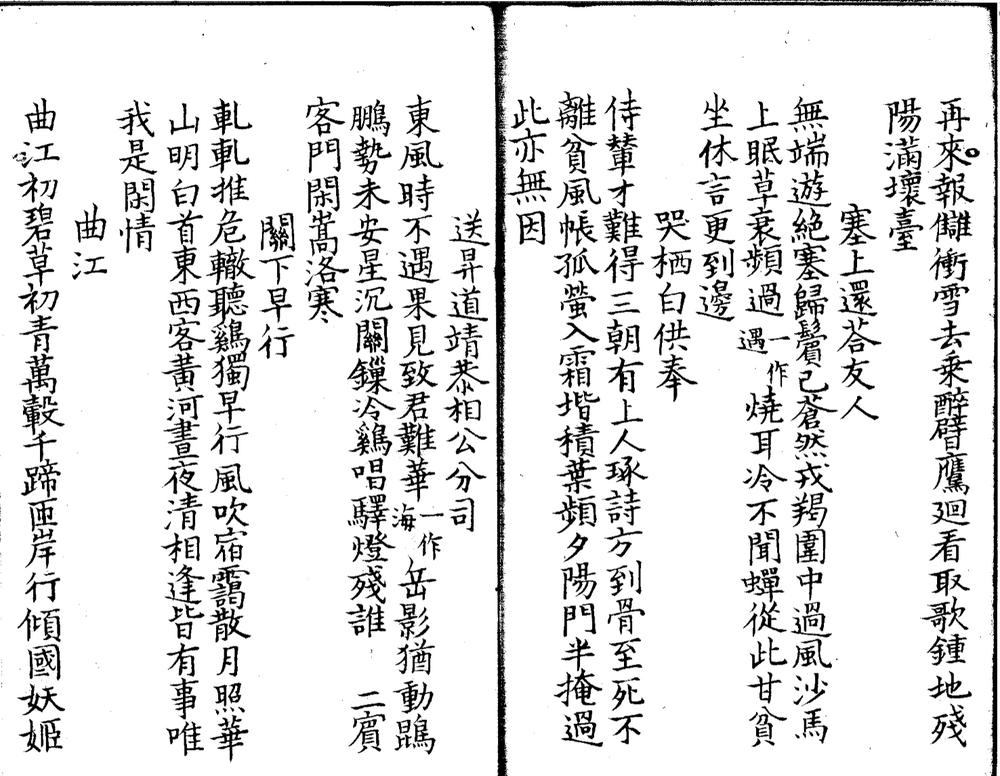 再來報讎衝雪去乘醉臂鷹廻看取歌鍾地殘
陽滿壞臺
塞上還荅友人
無端遊絕塞歸鬢已蒼然戎羯圍中過風沙馬
上眠草衰頻過一作遇燒耳冷不聞蟬從此甘貧
坐休言更到邊
哭栖白供奉
侍輦才難得三朝有上人琢詩方到骨至死不
離貧風帳孤螢入霜堦積葉頻夕陽門半掩過
此亦無因
送昇道靖恭相公分司
東風時不遇果見致君難華一作海岳影猶動鵾
鵬勢未安星沉關鏁冷鷄唱驛燈殘誰 二賓
客門閑嵩洛寒
關下早行
軋軋推危轍聽鷄獨早行風吹宿靄散月照華
山明白首東西客黃河晝夜清相逢皆有事唯
我是閑情
曲江
曲江初碧草初青萬轂千蹄匝岸行傾國妖姬